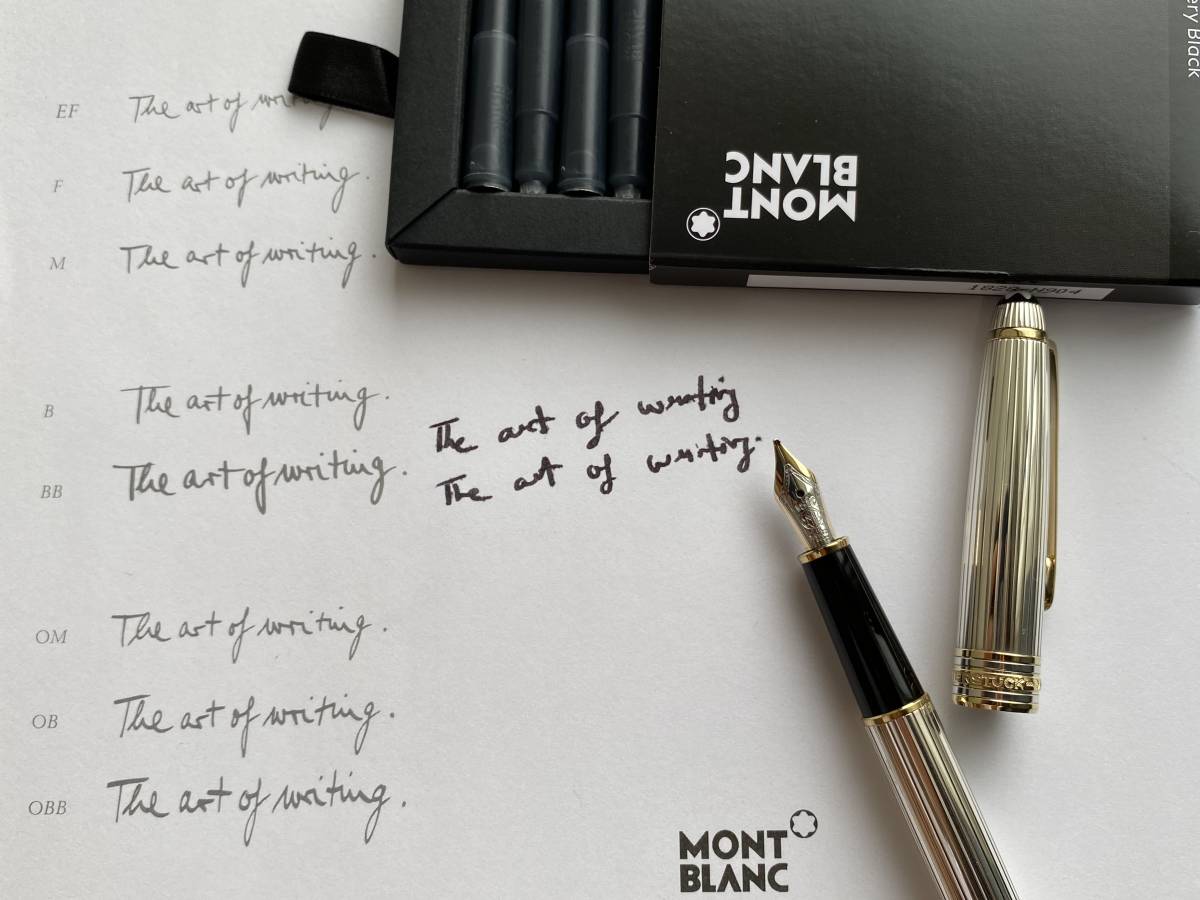 ery Black
MONT
BLANC
EF The art of writing
F The art of writing.
M The art of writing.
B The art of writing.
BB The art of writing.
The art of writing
The art of writing.
OM The art of writing.
OB The art of writing.
OBB The art of writing.
MONT
BLANC